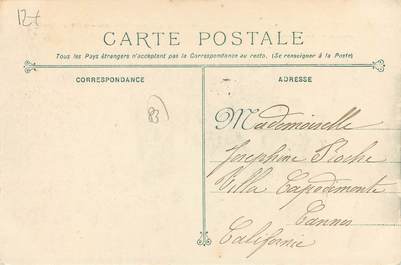 12€
CARTE POSTALE
Tous les Pays étrangers n'acceptent pas la Correspondance au recto. (Se renseigner à la Poste)
CORRESPONDANCE
ADRESSE
83
Mademoiselle
Joséphine Roche
Villa Capodimonte
Cannes
Californie